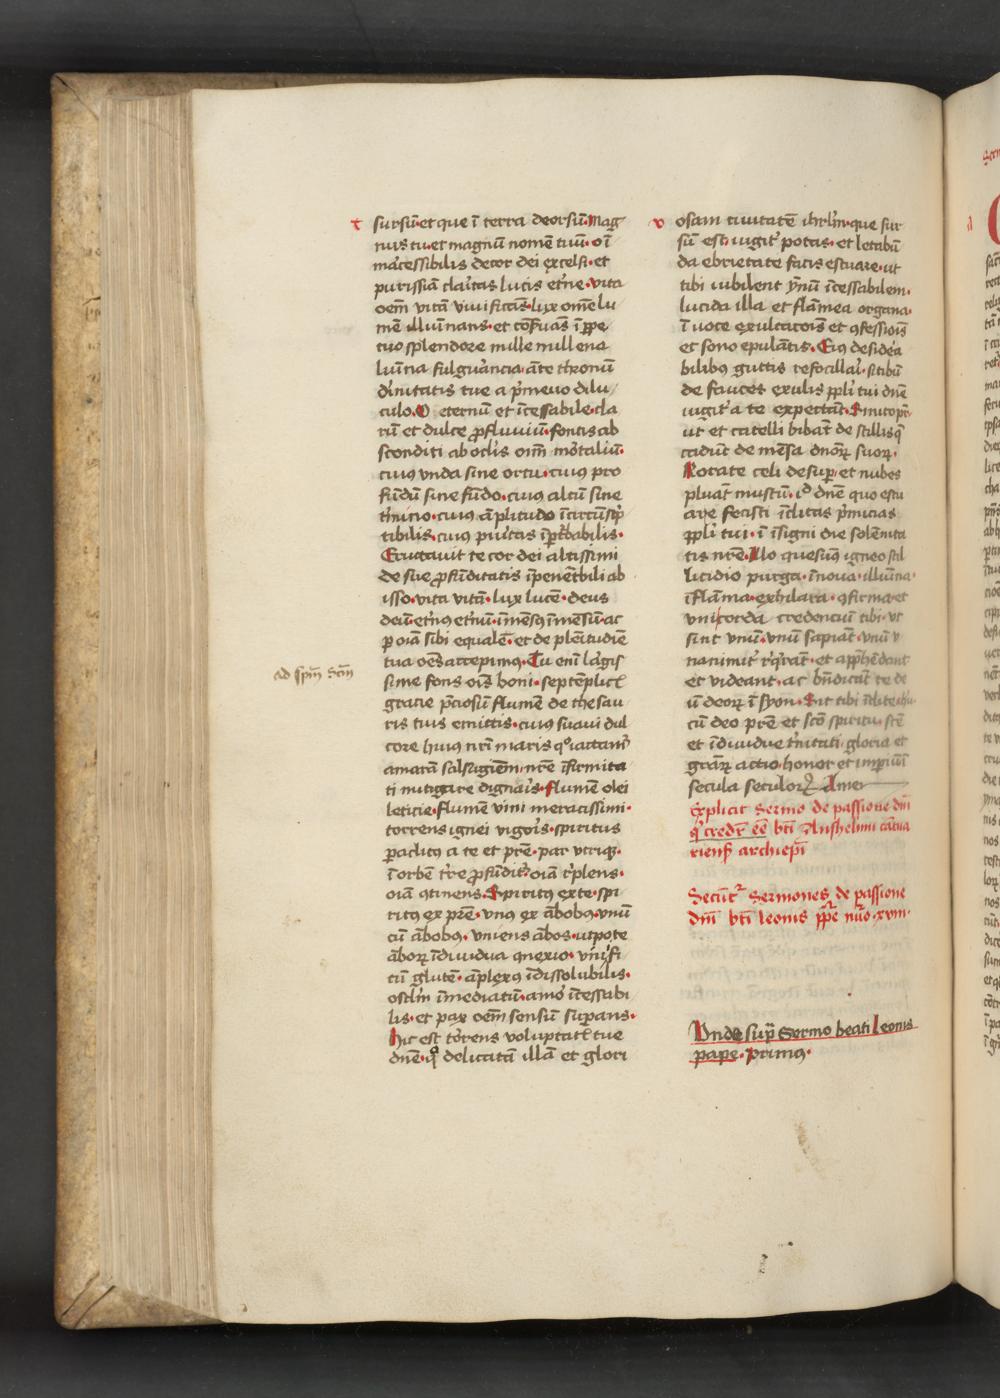 t
sursū· et que ī terra deorsū· Mag
nus tu· et magnū nomē tuū· oī
macessibilis decor dei excelsi· et
purissīa clāitas lucis etne· vita
oēm vitā vivificās· lux omē lu
mē illuīnans· et cōsuās ī ppe
tuo splendore mille millena
luīna fulgurancia· āte thronū
dinitatis tue a pmeuo dilu
culo· O eternū et īcessabile· cla
rū et dulce pfluuiū· fontis ab
sconditi ab oclis oīm mortaliū·
cuius vnda sine ortu· cuius pro
fūdū sine fūdo· cuius altū sine
tmino· cuius āplitudo īcircūscp
tibilis· cuius puritas īptbabilis·
Eructauit te cor dei altissimi
de sue pfūditatis īpenetbili ab
isso· vita vitā· lux lucē· deus
deū· etnus etnū· īmēsus īmēsū· ac
p oīa sibi equalē· et de plēitudīe
tua oēs accepimus· Tu enī largis
sime fons oīs boni· septēplicē
ad spm scm
gracie pciosū flumē de thesau
ris tuis emittis· cuius suaui dul
core huius nri maris
amarā salsugīem· nre īfirmita
ti mitigare dignaris· flumē olei
leticie· flumē vini meracissimi·
torrens ignei vigoris· spiritus
paclitus a te et pre· par vtrique·
ī orbē tre pfūdit· oīa rplens·
oīa gtinens· Spiritus ex te· spi
ritus ex pre· vnus ex ābobus· vnū
cū ābobus· vniens ābos· utpote
āborum īdiuidua gnexio· vnifi
cū glutē· āplexus īdissolubilis·
osclm īmediatū· amor īcessabi
lis· et pax oēm sensū supans·
Hic est torrens voluptatis tue
dnē· q delicatā illā et glori
v
osam ciuitatē ihrlm· que sur
sū est· iugit potas· et letabū
da ebrietate facis estuare· ut
tibi iubilent ymnū īcessabilem·
lucida illa et flāmea organa·
ī voce exultacōis et gfessiōis
et sono epulātis· Eius desidera
bilibus guttis refocillari· sitibū
de fauces exulis ppli tui dnē
iugit a te expectāt·
ut et catelli bibāt de stillis q
cadūt de mēsa dnorum suorum·
Rorate celi desup· et nubes
pluāt mustū· id dnē quo estu
are fecisti īclitas pmicias
ppli tui· ī īsigni die solēnita
tis nrē· Illo quesum igneo stil
licidio purga· īnoua· illuīna·
īflāma· exhilara· gfirma· et
vni corda credenciū tibi· ut
sint vnū· vnū sapiāt· vnū v
nanimit rqrāt· et apphēdant
et videant· ac bndicāt te de
ū deorum ī syon· Sit tibi īclite ihu
cū deo pre et sco spiritu· scē
et īdiuidue tnitati· gloria et
grārum actio· honor et imperiū ī
secula seculorum Amen
Explicit sermo de passione dni
q credr eē bti Anshelmi cātua
riens archiepi
Secūtur sermones de passione
dni bti leonis ppe nūo xviii·
Vnde sup Sermo beati Leonis
pape· primus·